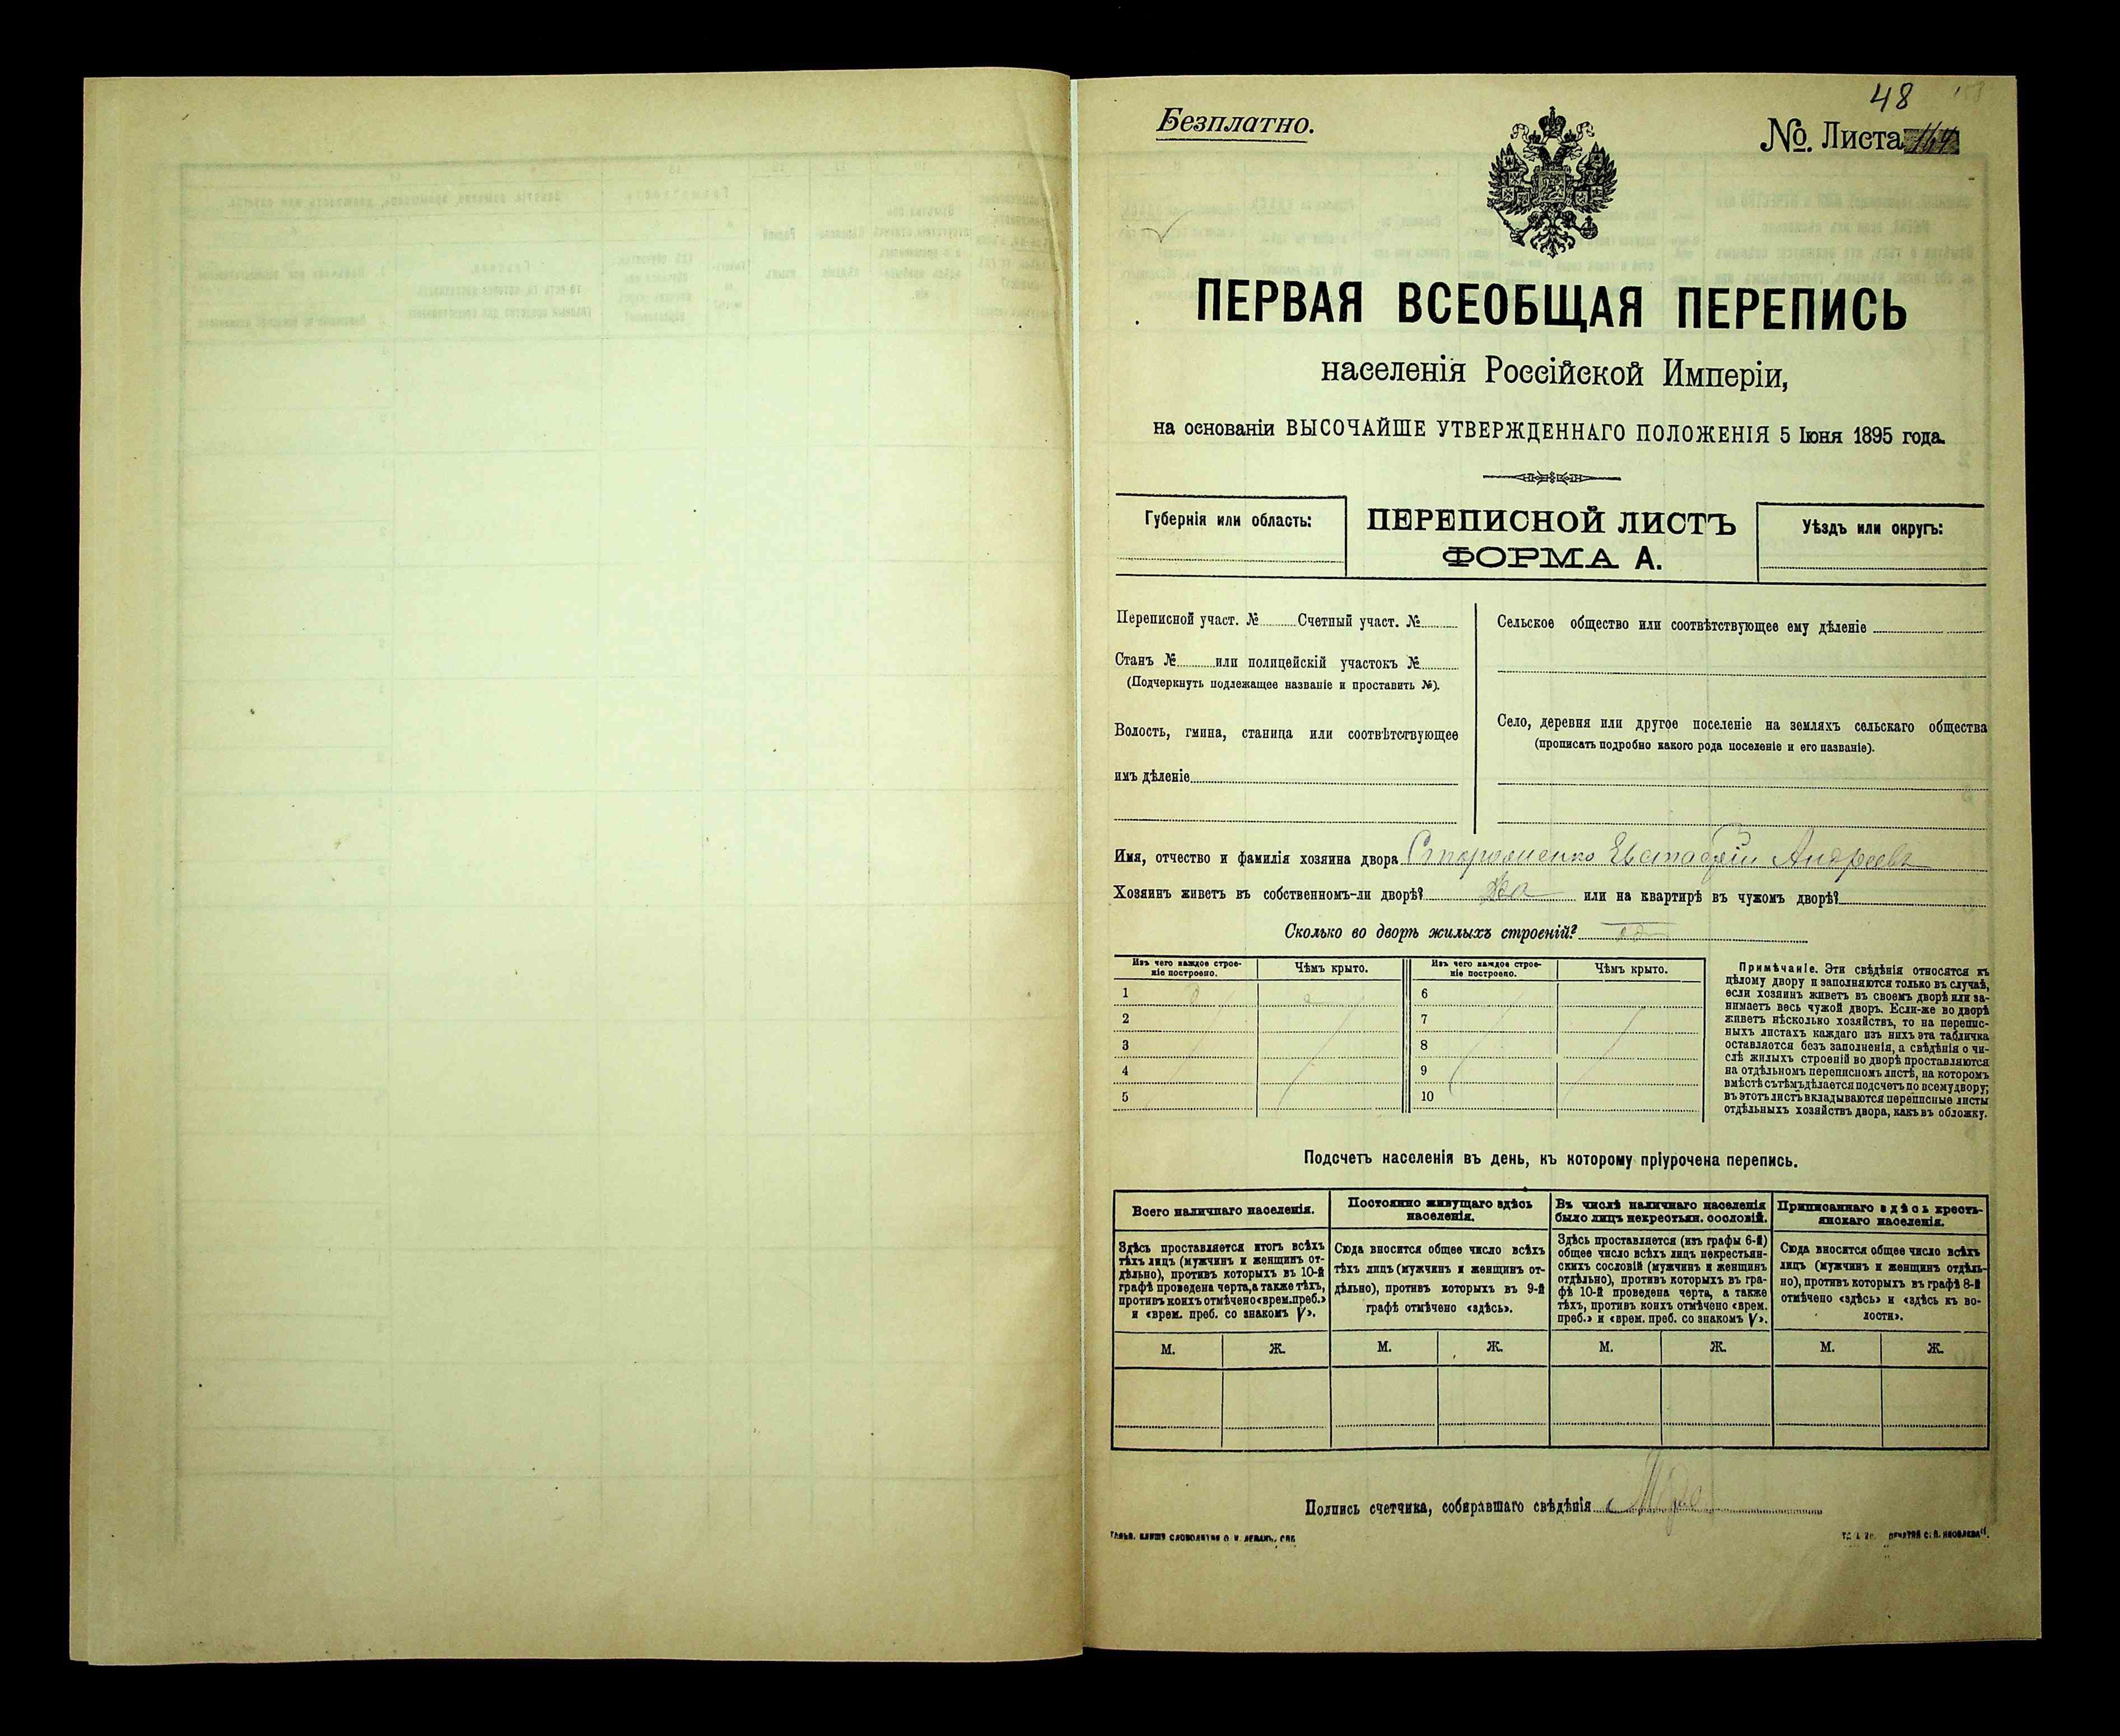 48
Безплатно.
№. Листа
ПЕРВАЯ ВСЕОБЩАЯ ПЕРЕПИСЬ
населенія Россійской Имперіи,
на основаніи ВЫСОЧАЙШЕ УТВЕРЖДЕННАГО ПОЛОЖЕНІЯ 5 Іюня 1895 года.
Губернія или область:
ПЕРЕПИСНОЙ ЛИСТЪ
ФОРМА А.
Уѣздъ или округъ:
Переписной участ. № Счетный участ. №
Станъ № или полицейскій участокъ №
(Подчеркнуть подлежащее названіе и проставить №).
Волость, гмина, станица или соотвѣтствующее
имъ дѣленіе
Сельское общество или соотвѣтствующее ему дѣленіе
Село, деревня или другое поселеніе на земляхъ сельскаго общества
(прописать подробно какого рода поселеніе и его названіе).
Имя, отчество и фамилія хозяина двора Евстафій Андреевъ
Хозяинъ живетъ въ собственномъ-ли дворѣ? Да или на квартирѣ въ чужомъ дворѣ?
Сколько во дворѣ жилыхъ строеній?
Изъ чего каждое строе-
ніе построено.
Чѣмъ крыто.
1
2
3
4
5
Изъ чего каждое строе-
ніе построено.
Чѣмъ крыто.
6
7
8
9
10
Примѣчаніе. Эти свѣдѣнія относятся къ
цѣлому двору и заполняются только въ случаѣ,
если хозяинъ живетъ въ своемъ дворѣ или за-
нимаетъ весь чужой дворъ. Если-же во дворѣ
живетъ нѣсколько хозяйствъ, то на перепис-
ныхъ листахъ каждаго изъ нихъ эта табличка
оставляется безъ заполненія, а свѣдѣнія о чи-
слѣ жилыхъ строеній во дворѣ проставляются
на отдѣльномъ переписномъ листѣ, на которомъ
вмѣстѣ съ тѣмъ дѣлается подсчетъ по всему двору;
въ этотъ листъ вкладываются переписные листы
отдѣльныхъ хозяйствъ двора, какъ въ обложку.
Подсчетъ населенія въ день, къ которому пріурочена перепись.
Всего наличнаго населенія.
Здѣсь проставляется итогъ всѣхъ
тѣхъ лицъ (мужчинъ и женщинъ от-
дѣльно), противъ которыхъ въ 10-й
графѣ проведена черта, а также тѣхъ,
противъ коихъ отмѣчено «врем. преб.»
и «врем. преб. со знакомъ V».
М. Ж.
Постоянно живущаго здѣсь
населенія.
Сюда вносится общее число всѣхъ
тѣхъ лицъ (мужчинъ и женщинъ от-
дѣльно), противъ которыхъ въ 9-й
графѣ отмѣчено «здѣсь».
М. Ж.
Въ числѣ наличнаго населенія
было лицъ некрестьян. сословій.
Здѣсь проставляется (изъ графы 6-й)
общее число всѣхъ лицъ некрестьян-
скихъ сословій (мужчинъ и женщинъ
отдѣльно), противъ которыхъ въ гра-
фѣ 10-й проведена черта, а также
тѣхъ, противъ коихъ отмѣчено «врем.
преб.» и «врем. преб. со знакомъ V».
М. Ж.
Приписаннаго здѣсь кресть-
янскаго населенія.
Сюда вносится общее число всѣхъ
лицъ (мужчинъ и женщинъ отдѣль-
но), противъ которыхъ въ графѣ 8-й
отмѣчено «здѣсь» и «здѣсь къ во-
лости».
М. Ж.
Подпись счетчика, собиравшаго свѣдѣнія